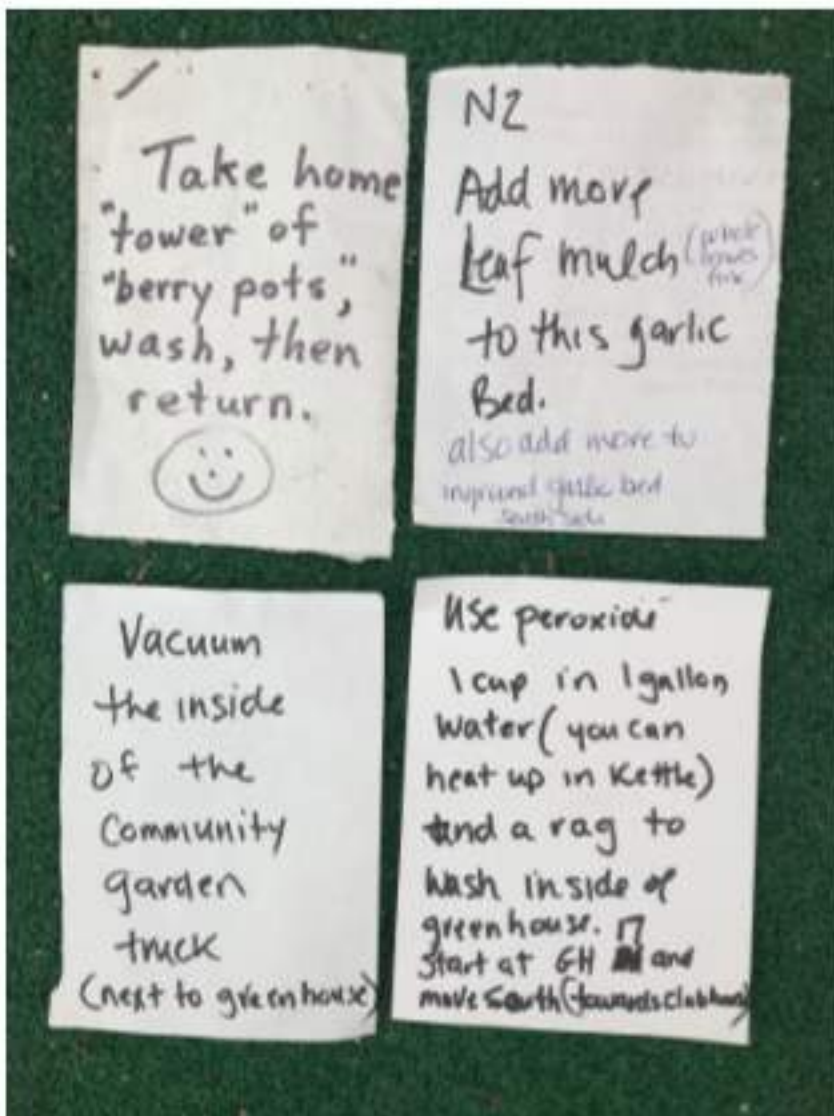 Take home
"tower" of
"berry pots,"
wash, then
return.
N2
Add more
Leaf mulch (whole
leaves
fine)
to this garlic
Bed.
also add more to
inground garlic bed
south side
Vacuum
the inside
of the
Community
garden
truck
(next to greenhouse)
Use peroxide
1 cup in 1 gallon
water (you can
heat up in kettle)
and a rag to
wash inside of
greenhouse.
Start at GH and
move South (towards clubhouse)